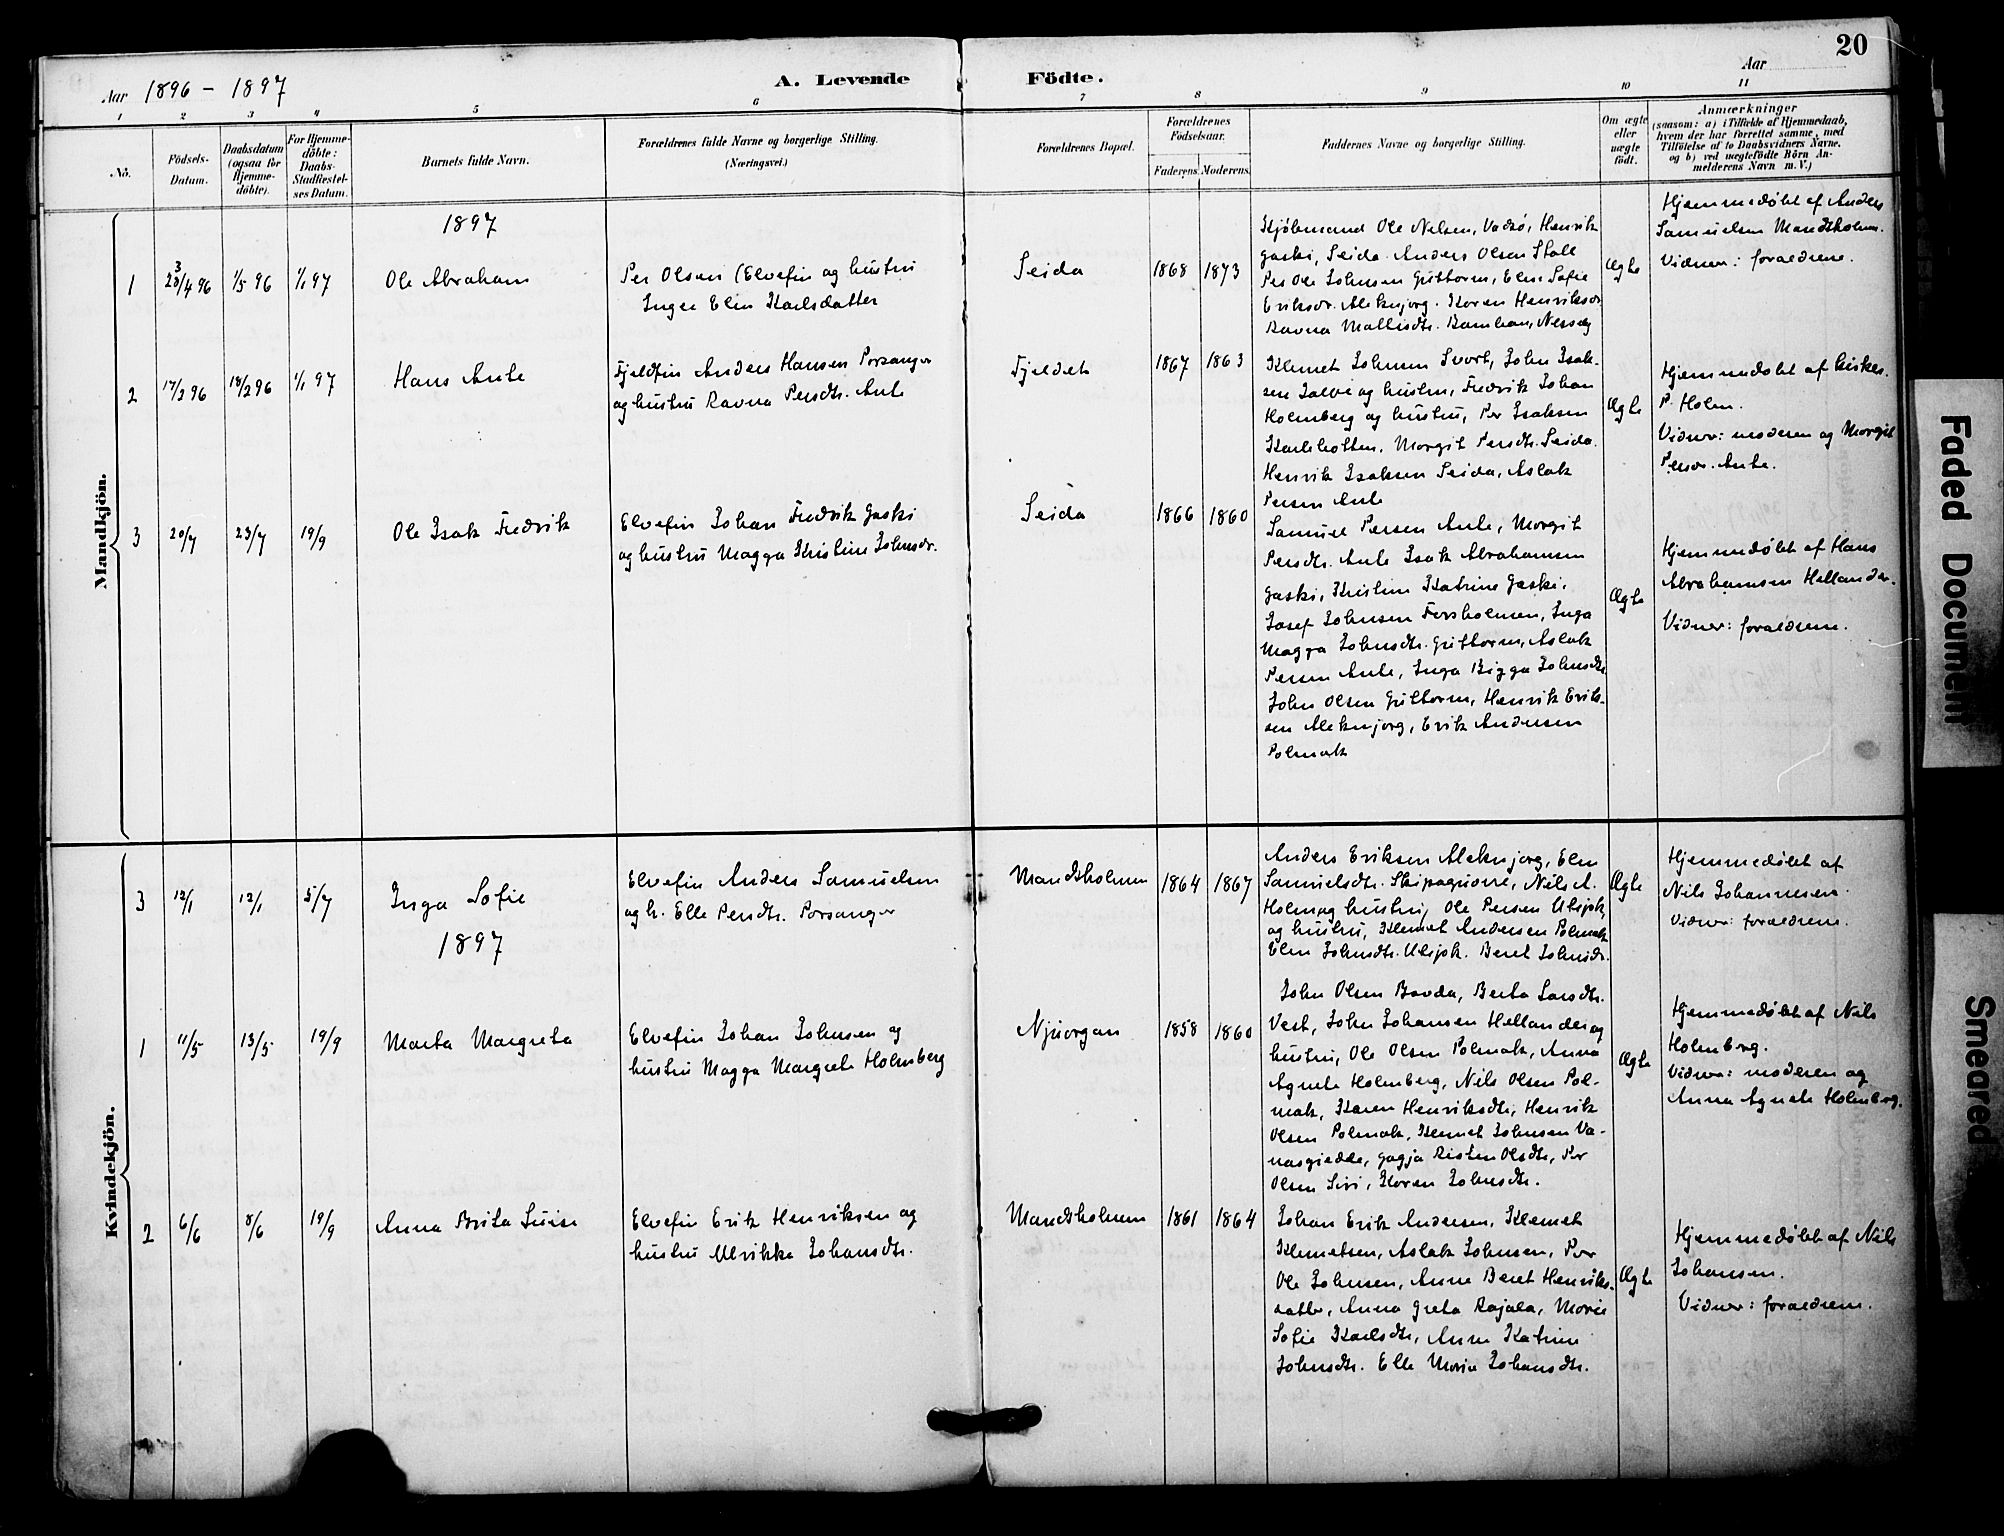 20
Aar 1896 - 1897
A. Levende Födte.
Aar
1 2 3 4 5 6 7 8 9 10 11
Nö.
Födsels-
Datum.
Daabsdatum
(ogsaa for
Hjemme-
döbte).
For Hjemme-
döbte:
Daabs-
Stadfæstel-
ses Datum.
Barnets fulde Navn.
Forældrenes fulde Navne og borgerlige Stilling.
(Næringsvei.)
Forældrenes Bopæl.
Forældrenes
Födselsaar.
Faderens. Moderens.
Faddernes Navne og borgerlige Stilling.
Om ægte
eller
uægte
født.
Anmærkninger
(saasom: a) i Tilfælde af Hjemmedaab,
hvem der har forrettet samme, med
Tilföielse af to Daabsvidners Navne,
og b) ved uægtefödte Börn An-
melderens Navn m. V.)
Mandkjön.
1897
1 23/4 96 1/5 96 1/1 97 Ole Abraham
Per Olsen (Elvefin og hustru
Inger Elin Karlsdatter
Seida 1868 1873
Kjöbmand Ole Nilsen, Vadsö, Henrik
Gaski, Seida. Anders Olsen Stall
Per Ole Johnsen Guttorm, Elen Sofie
Eriksdr. Aleknjarg. Karen Henriksdr
Ravna Mathisdtr.
Ægte
Hjemmedöbt af Anders
Samuelsen Mandsholm.
Vidner: forældrene.
2 17/2 96 18/2 96 1/1 97 Hans Ante
Fjeldfin Anders Hansen Porsanger
og hustru Ravna Persdtr. Ante
Fjeldet 1867 1863
Klemet Johnsen Svart, John Isak-
sen og hustru, Fredrik Johan
Holmberg og hustru, Per Isaksen
Margit Persdtr. Seida.
Henrik Isaksen Seida, Aslak
Persen Ante
Ægte
Hjemmedöbt af kirkes.
P. Holm.
Vidner: moderen og Margit
Persdr. Ante.
3 20/7 23/7 19/9 Ole Isak Fredrik
Elvefin Johan Fredrik Gaski
og hustru Magga Kristine Johnsdr.
Seida 1866 1860
Samuel Persen Ante, Margit
Persdtr. Ante Isak Abrahamsen
Gaski, Kristine Katrine Gaski,
Josef Johnsen Forsholmen, Inga
Magga Johnsdtr. Guttorm, Aslak
Persen Ante, Inga Bigga Johnsdtr.
John Olsen Guttorm, Henrik Erik-
sen Aleknjarg, Erik Andersen
Polmak
Ægte
Hjemmedöbt af Hans
Abrahamsen Hellander.
Vidner: forældrene.
Kvindekjön.
3 12/1 12/1 5/7 Inga Sofie
Elvefin Anders Samuelsen
og h. Elle Persdtr. Porsanger
Mandsholmen 1864 1867
Anders Eriksen Aleknjarg, Elen
Samuelsdtr. Skipagurra, Nils A.
Holm og hustru, Ole Persen Utsjok,
og hustru, Klemet Andersen Polmak
Elen Johnsdtr. Utsjok. Beret Johnsdr.
Ægte
Hjemmedöbt af
Nils Johannesen
Vidner: forældrene.
1897
1 11/5 13/5 19/9 Marta Margreta
Elvefin Johan Johnsen og
hustru Magga Margrete Holmberg
Njuorgan 1858 1860
John Olsen Bavda, Berta Larsdtr.
Vest, John Johansen Hellander og
hustru, Ole Olsen Polmak, Anna
Agnete Holmberg, Nils Olsen Pol-
mak, Karen Henriksdtr, Henrik
Olsen Polmak, Klemet Johnsen Va-
nasgiedde, Gagja Risten Olsdtr, Per
Olsen Siri, Karen Johnsdtr.
Ægte
Hjemmedöbt af Nils
Holmberg.
Vidner: moderen og
Anna Agnete Holmberg.
2 6/6 8/6 19/9 Anna Brita Luise
Elvefin Erik Henriksen og
hustru Ulrikka Johansdtr.
Mandsholmen 1861 1864
Johan Erik Andersen, Klemet
Klemetsen, Aslak Johnsen, Per
Ole Johnsen, Anne Beret Henriks-
datter, Anna Greta Rajala, Marie
Sofie Karlsdtr, Anne Katrine
Johnsdtr. Elle Marie Johansdtr.
Ægte
Hjemmedöbt af Nils
Johansen.
Vidner: forældrene.
Faded Document
Smeared